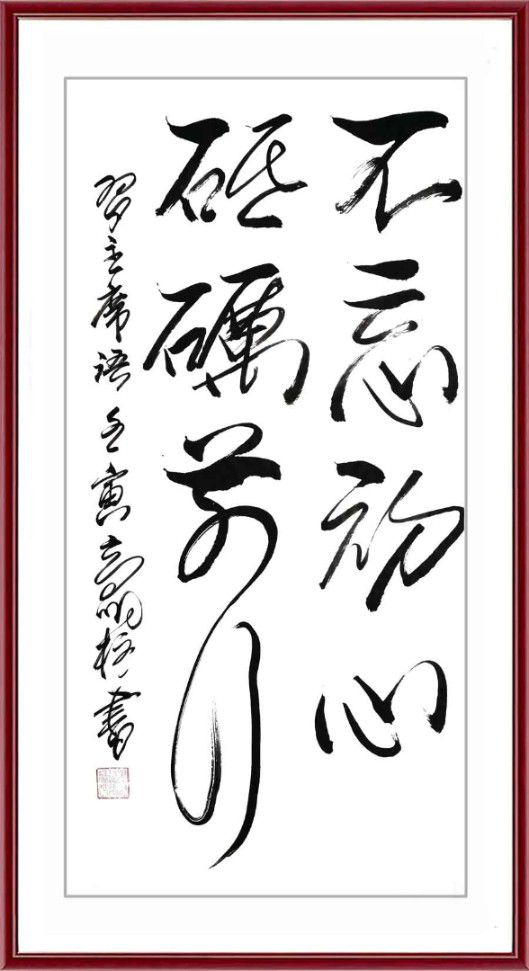 不忘初心
砥砺前行
习主席语 壬寅高明柱书